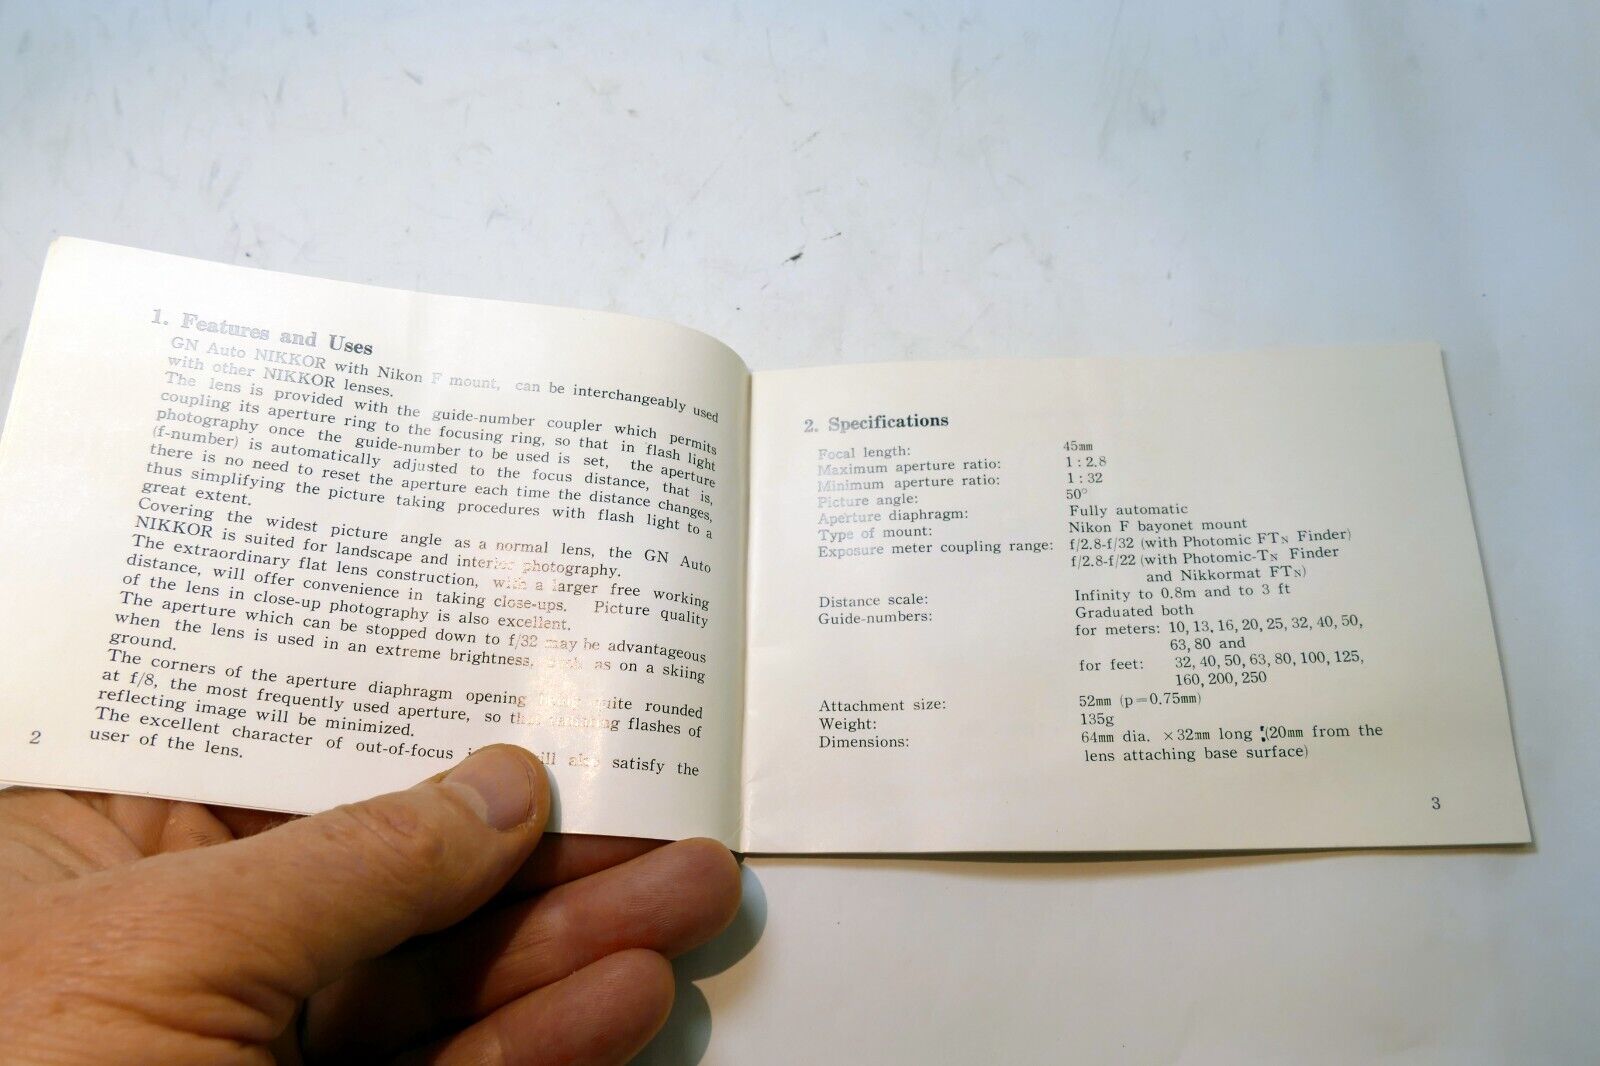 1. Features and Uses
GN Auto NIKKOR with Nikon F mount, can be interchangeably used
with other NIKKOR lenses.
The lens is provided with the guide-number coupler which permits
coupling its aperture ring to the focusing ring, so that in flash light
photography once the guide-number to be used is set, the aperture
(f-number) is automatically adjusted to the focus distance, that is,
there is no need to reset the aperture each time the distance changes,
thus simplifying the picture taking procedures with flash light to a
great extent.
Covering the widest picture angle as a normal lens, the GN Auto
NIKKOR is suited for landscape and interior photography.
The extraordinary flat lens construction, with a larger free working
distance, will offer convenience in taking close-ups. Picture quality
of the lens in close-up photography is also excellent.
The aperture which can be stopped down to f/32 may be advantageous
when the lens is used in an extreme brightness, such as on a skiing
ground.
The corners of the aperture diaphragm opening quite rounded
at f/8, the most frequently used aperture, so flashes of
reflecting image will be minimized.
The excellent character of out-of-focus will also satisfy the
user of the lens.
2
2. Specifications
Focal length: 45mm
Maximum aperture ratio: 1 : 2.8
Minimum aperture ratio: 1 : 32
Picture angle: 50°
Aperture diaphragm: Fully automatic
Type of mount: Nikon F bayonet mount
Exposure meter coupling range: f/2.8-f/32 (with Photomic FTN Finder)
f/2.8-f/22 (with Photomic-TN Finder
and Nikkormat FTN)
Distance scale: Infinity to 0.8m and to 3 ft
Guide-numbers: Graduated both
for meters: 10, 13, 16, 20, 25, 32, 40, 50,
63, 80 and
for feet: 32, 40, 50, 63, 80, 100, 125,
160, 200, 250
Attachment size: 52mm (p=0.75mm)
Weight: 135g
Dimensions: 64mm dia. ×32mm long (20mm from the
lens attaching base surface)
3